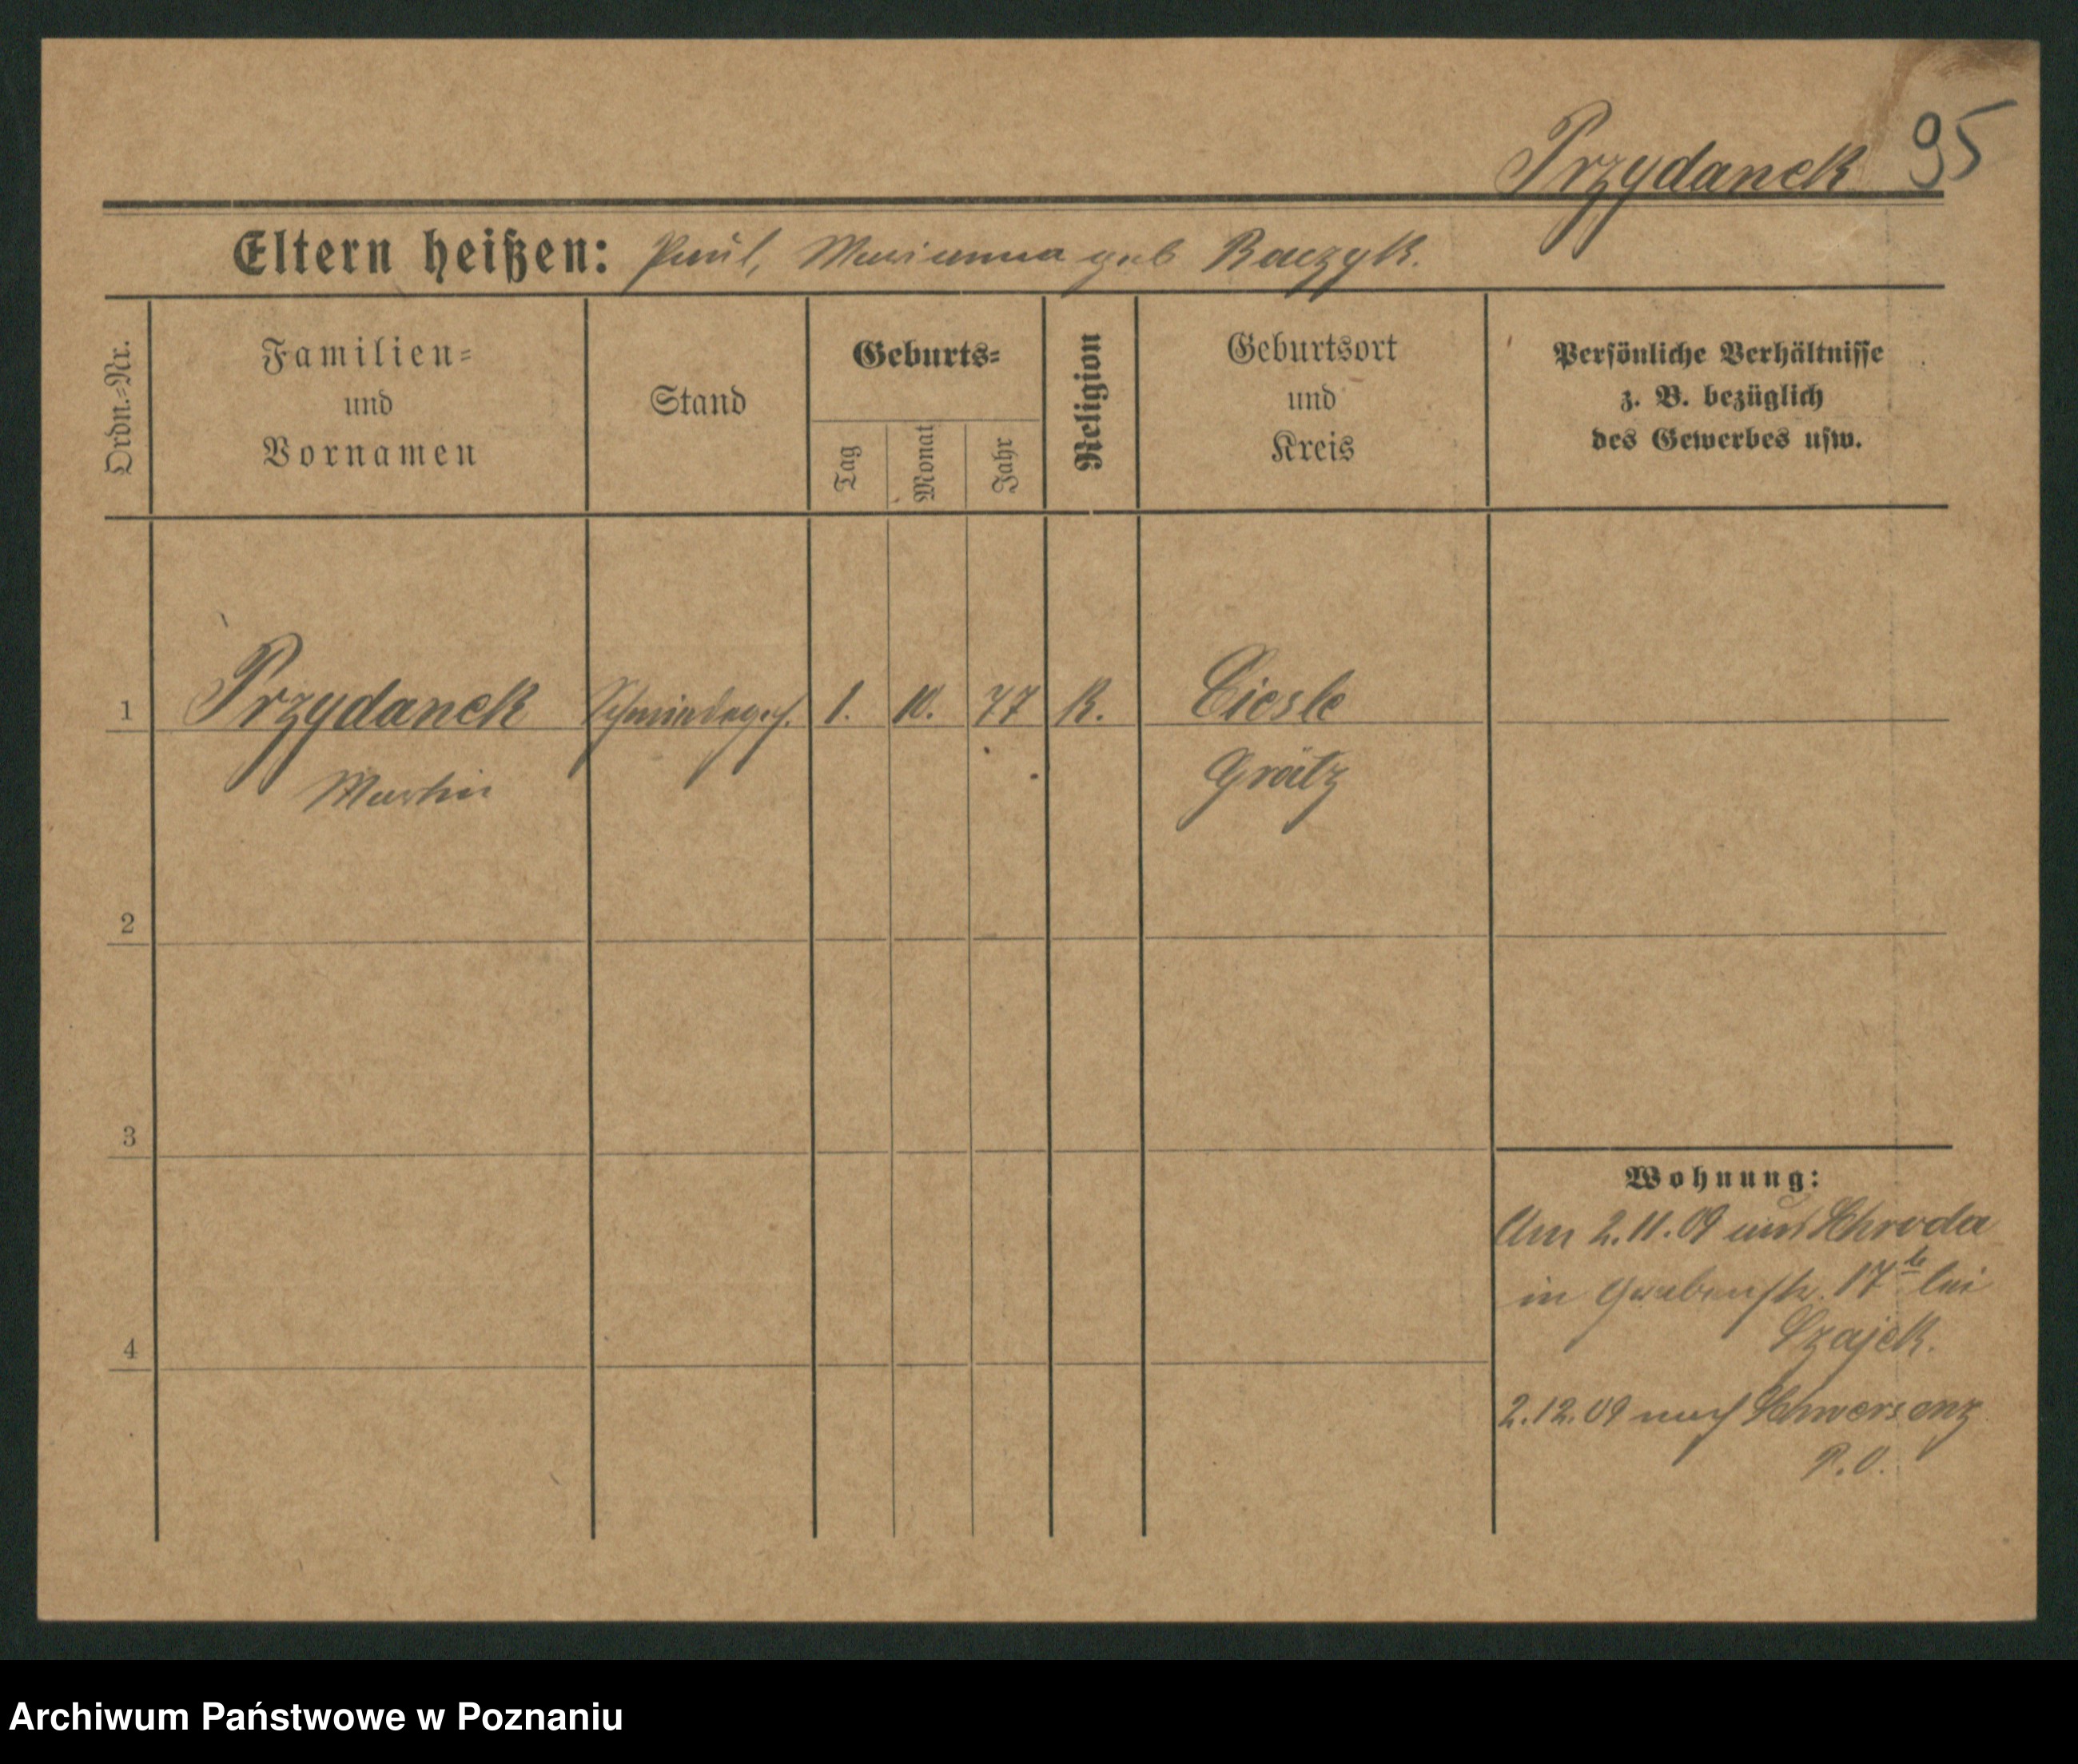 Przydanek 95
Eltern heißen: Paul, Marianna geb Raczyk.
Ordn.=Nr.
Familien=
und
Vornamen
Stand
Geburts=
Tag
Monat
Jahr
Religion
Geburtsort
und
Kreis
Persönliche Verhältnisse
z. B. bezüglich
des Gewerbes usw.
1 Przydanek Schmiedeges. 1. 10. 77 K. Ciesle
Martin Grätz
2
3
Wohnung:
Am 2.11.09 aus Schroda
in Grabenstr. 17 bei
Szajek.
4
2.12.09 nach Schwersenz
P.O.
Archiwum Państwowe w Poznaniu